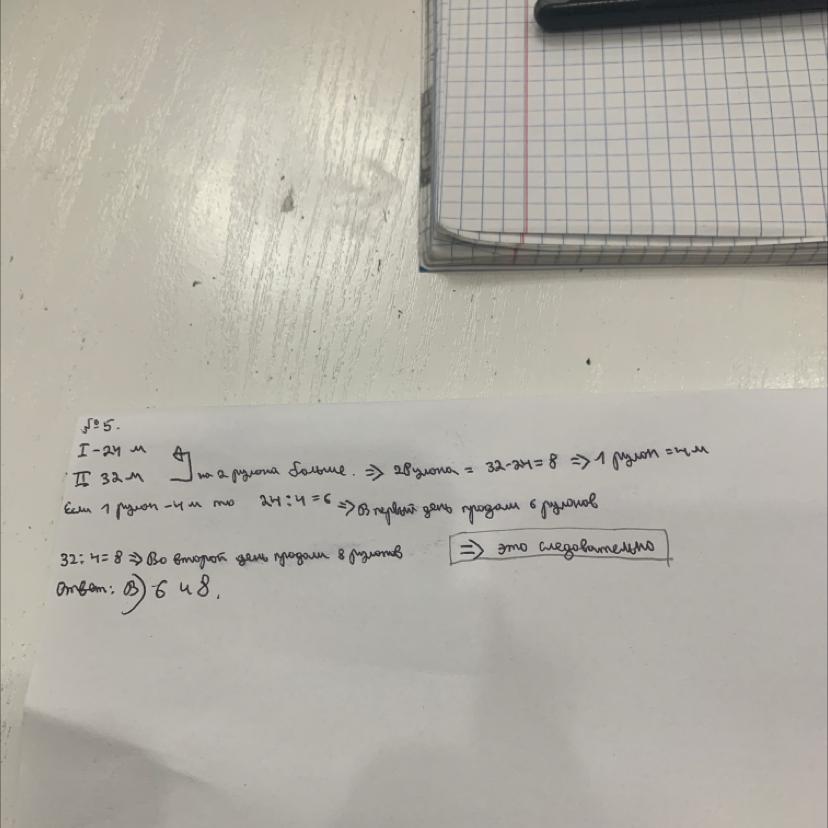 №5.
I - 24 м
II 32 м на 2 рулона больше. => 2 рулона = 32-24=8 => 1 рулон = 4 м
Если 1 рулон - 4 м то 24:4=6 => В первый день продали 6 рулонов
32:4=8 => Во второй день продали 8 рулонов
=> это следовательно
Ответ: В) 6 и 8.